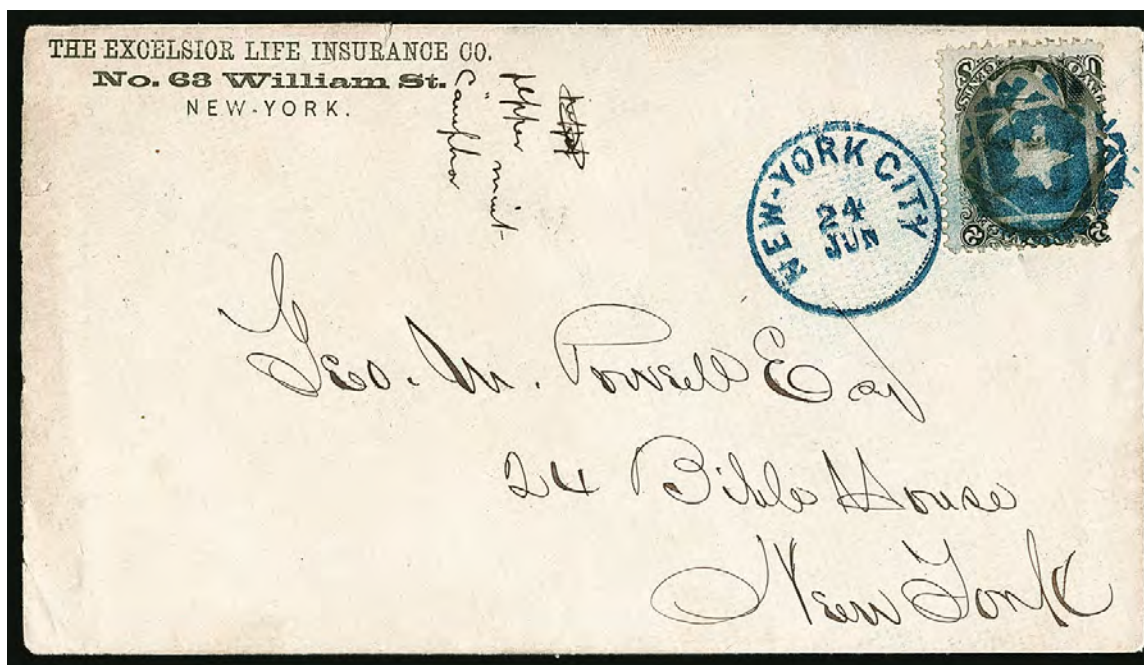 THE EXCELSIOR LIFE INSURANCE CO.
No. 63 William St.
NEW-YORK.
pepper mint
Camphor
NEW-YORK CITY
24
JUN
Geo. M. Powell Esq
24 Bible House
New York